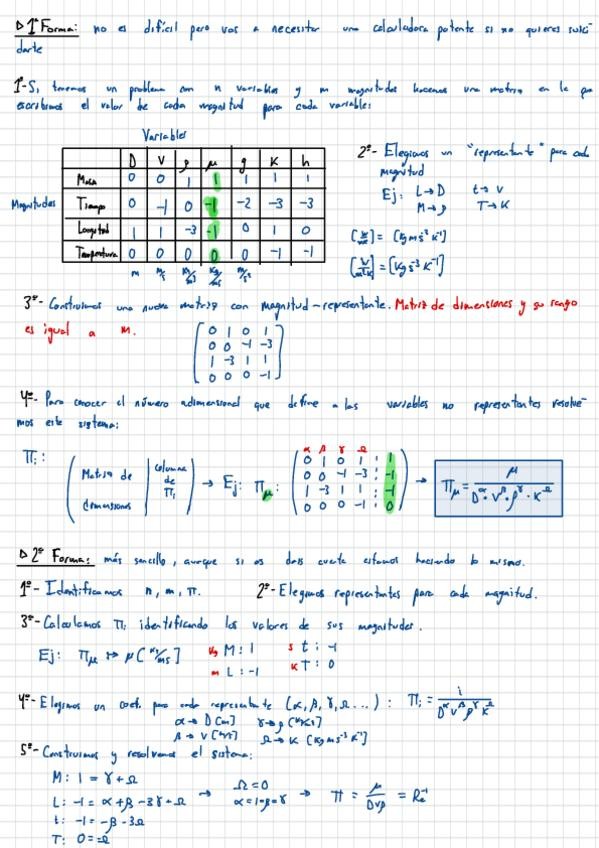 ▷ 1ª Forma: no es difícil pero vas a necesitar una calculadora potente si no quieres suici-
darte
1º- Si tenemos un problema con n variables y m magnitudes hacemos una matriz en la que
escribimos el valor de cada magnitud para cada variable:
Variables
D V ρ μ g K h
Masa 0 0 1 1 1 1 1
Magnitudes Tiempo 0 -1 0 -1 -2 -3 -3
Longitud 1 1 -3 -1 0 1 0
Temperatura 0 0 0 0 0 -1 -1
m m/s kg/m³ kg/ms m/s²
2º- Elegimos un "representante" para cada
magnitud
Ej: L→D t→V
M→ρ T→K
= [kg m s⁻³ K⁻¹]
= [kg s⁻³ K⁻¹]
3º- Construimos una nueva matriz con magnitud-representante. Matriz de dimensiones y su rango
es igual a m.
0 1 0 1
0 0 -1 -3
1 -3 1 1
0 0 0 -1
4º- Para conocer el número adimensional que define a las variables no representantes resolve-
mos este sistema:
Πi: (Matriz de dimensiones | columna de Πi) → Ej: Πμ:
α β γ Ω
0 1 0 1 : 1
0 0 -1 -3 : -1
1 -3 1 1 : -1
0 0 0 -1 : 0
→ Πμ = μ / D^α · V^β · ρ^γ · K^Ω
▷ 2ª Forma: más sencillo, aunque si os dais cuenta estamos haciendo lo mismo.
1º- Identificamos n, m, π. 2º- Elegimos representantes para cada magnitud.
3º- Calculamos Πi identificando los valores de sus magnitudes.
Ej: Πμ ↦ μ [kg/ms] kg M: 1 s t: -1
m L: -1 K T: 0
4º- Elegimos un coef. para cada representante (α, β, γ, Ω ...) : Πi = i / D^α V^β ρ^γ K^Ω
α→ D [m]
β→ V [m/s] Ω→ K [kg m s⁻³ K⁻¹]
5º- Construimos y resolvemos el sistema:
M: 1 = γ + Ω
L: -1 = α + β - 3γ + Ω
t: -1 = -β - 3Ω
T: 0 = -Ω
→ Ω = 0
α = 1 = β = γ
→ Π = μ / DVρ = Re⁻¹